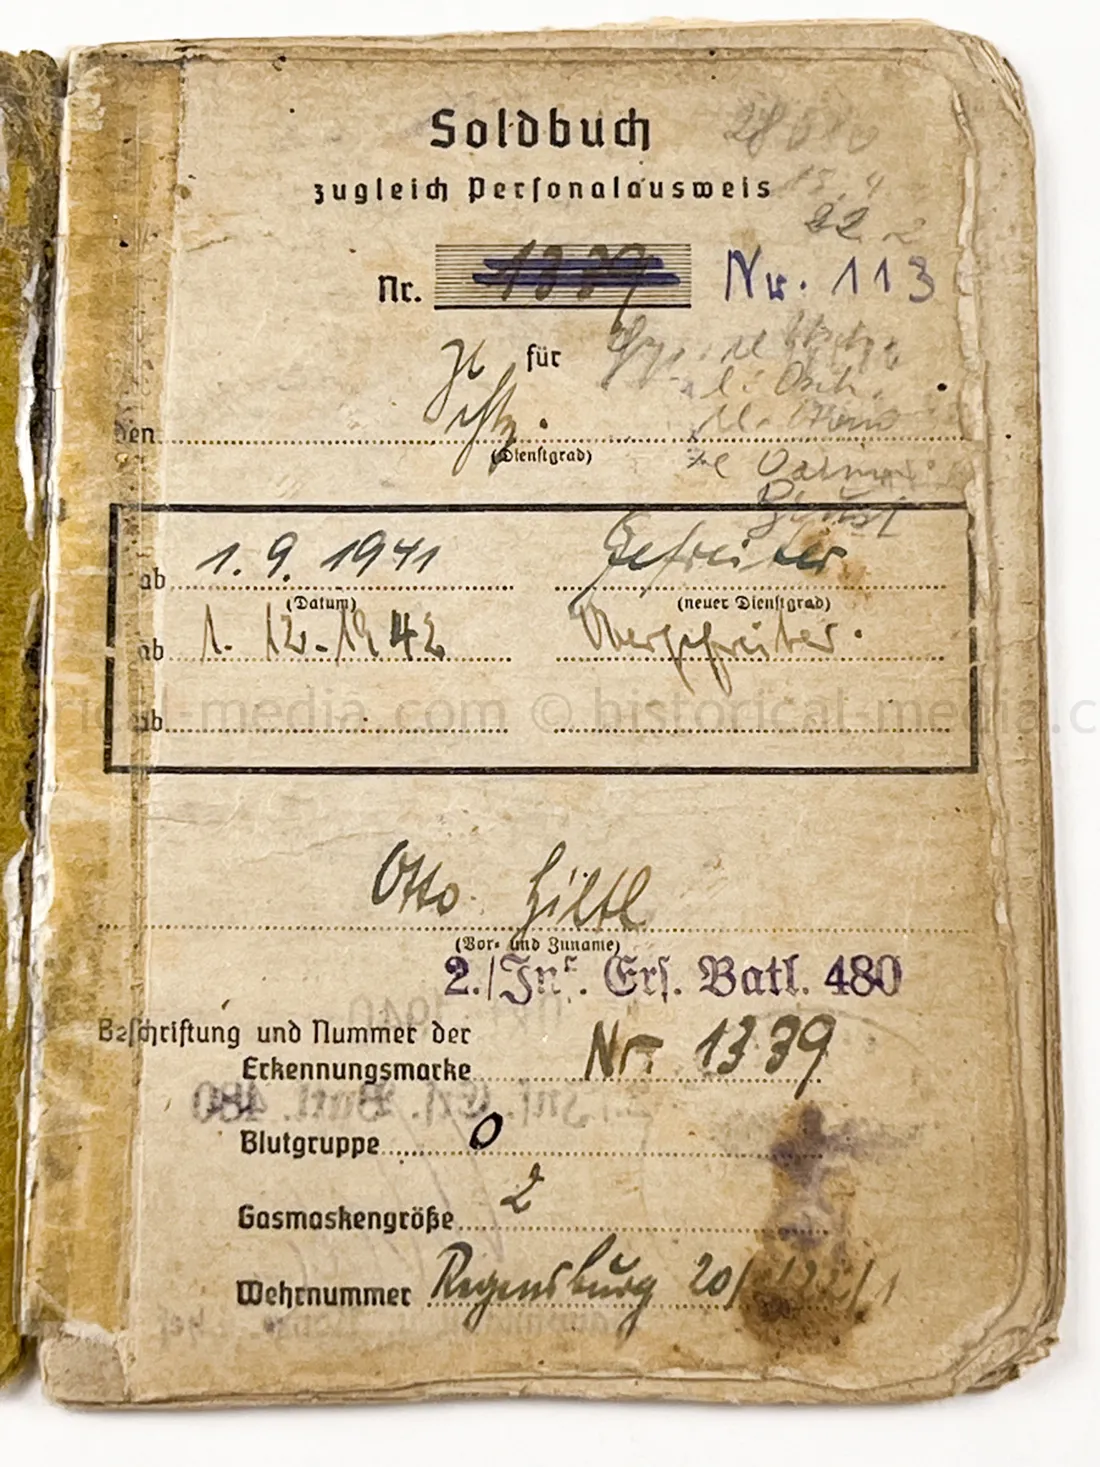 Soldbuch
zugleich Personalausweis
22.
Nr. 1339 Nr. 113
für
den
(Dienstgrad)
ab 1. 9. 1941 Gefreiter
(Datum) (neuer Dienstgrad)
ab 1. 12. 1942 Obergefreiter.
ab
historical-media.com © historical-media.c
Otto Hiltl
(Vor- und Zuname)
2./Inf. Ers. Batl. 480
Beschriftung und Nummer der
Erkennungsmarke Nr. 1339
Blutgruppe O
Gasmaskengröße 2
Wehrnummer Regensburg 20/